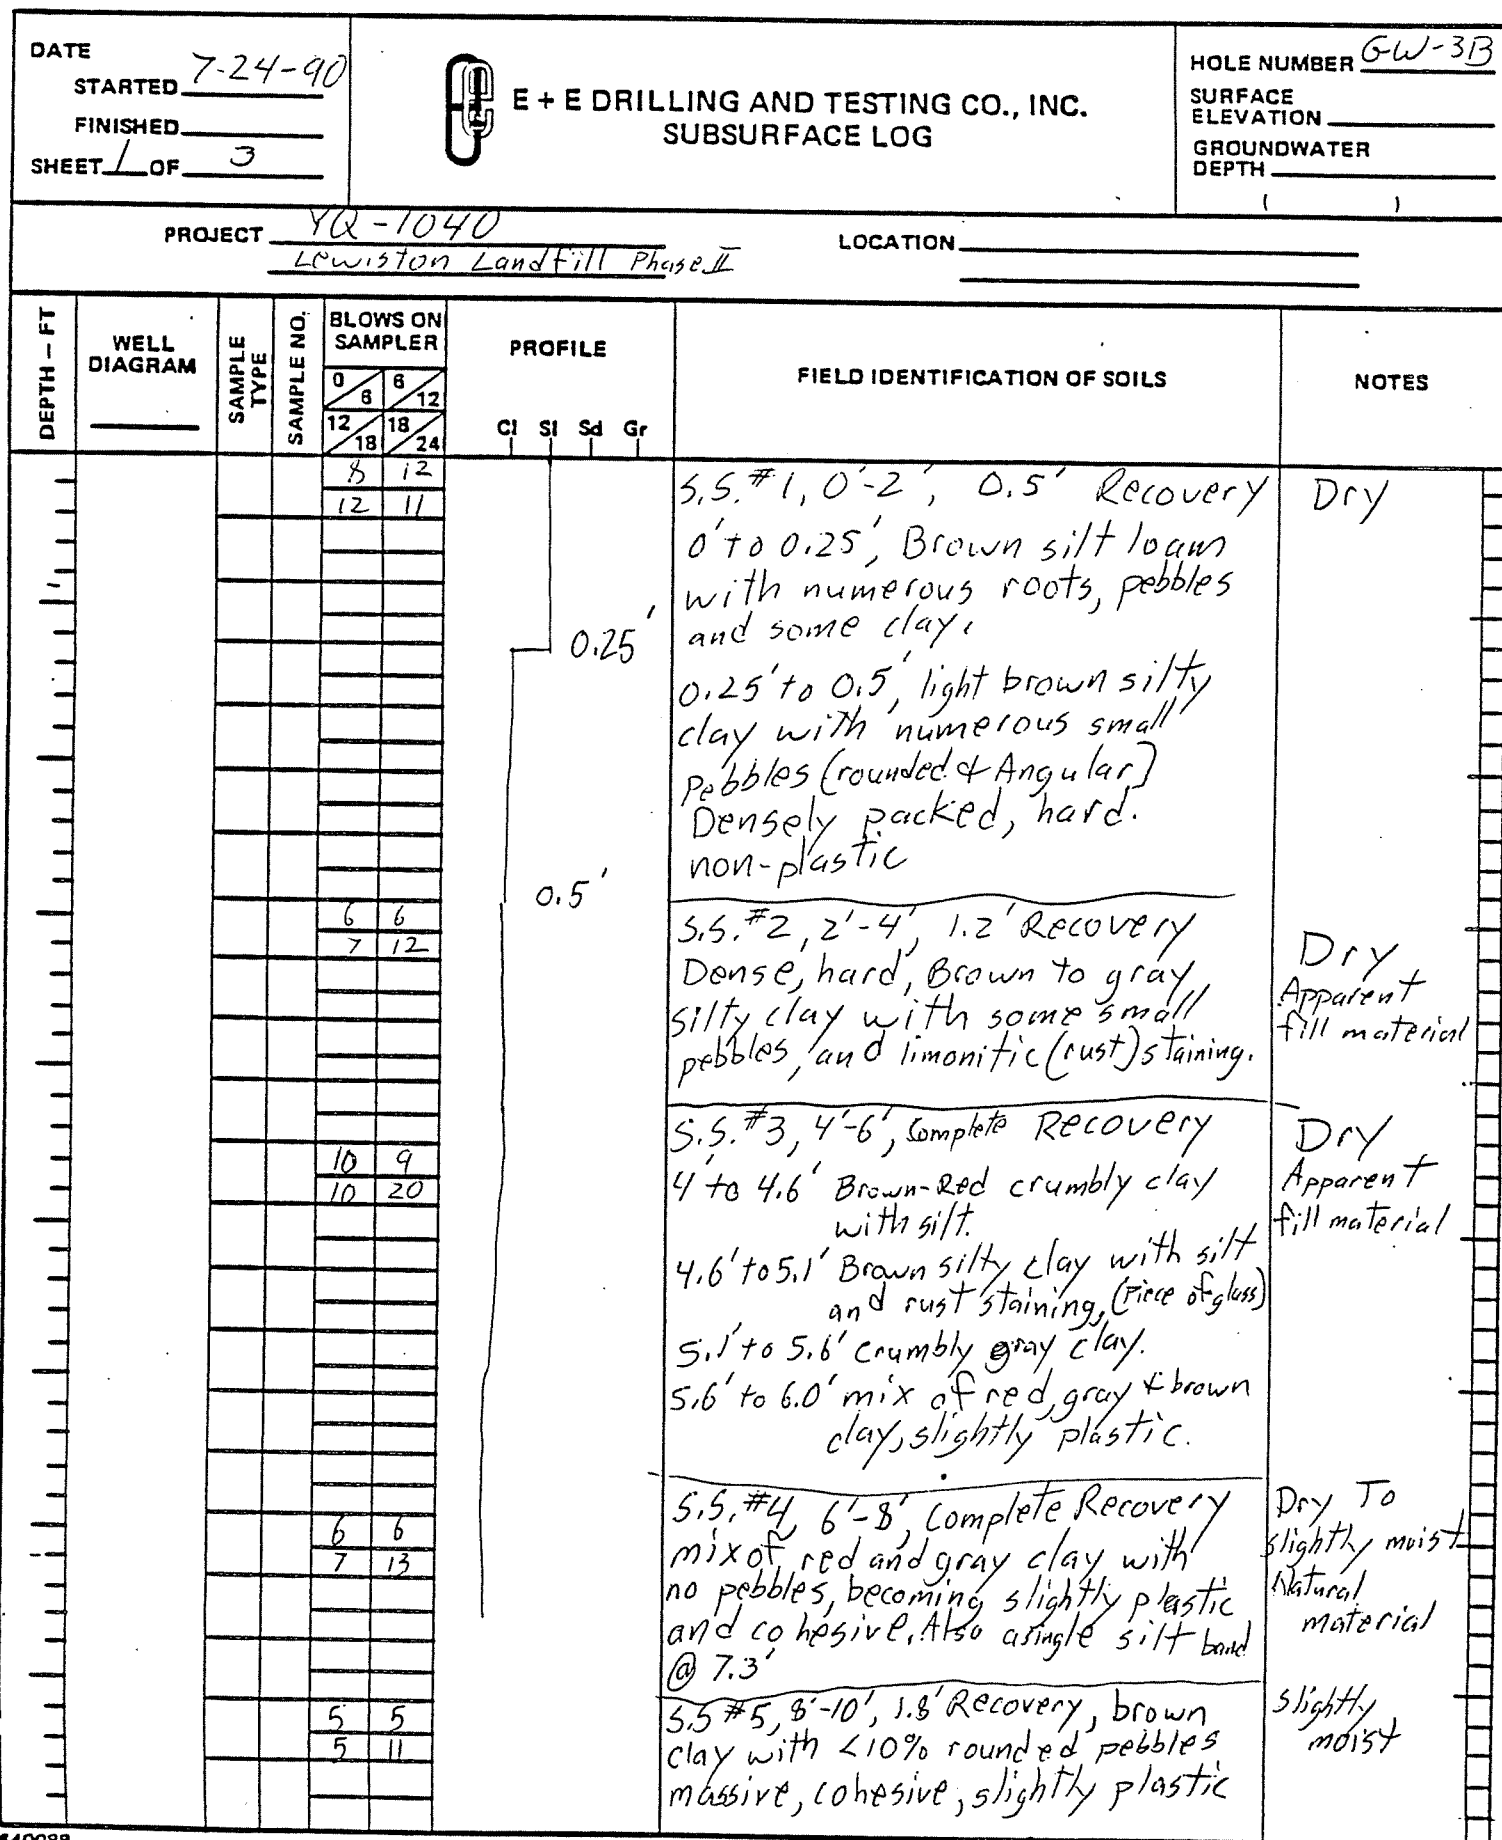 DATE
STARTED 7-24-90
FINISHED
SHEET 1 OF 3
E + E DRILLING AND TESTING CO., INC.
SUBSURFACE LOG
HOLE NUMBER GW-3B
SURFACE
ELEVATION
GROUNDWATER
DEPTH
( )
PROJECT YQ-1040
Lewiston Landfill Phase II
LOCATION
DEPTH – FT
WELL
DIAGRAM
SAMPLE
TYPE
SAMPLE NO.
BLOWS ON
SAMPLER
0/6 6/12
12/18 18/24
PROFILE
Cl Sl Sd Gr
FIELD IDENTIFICATION OF SOILS
NOTES
8 12
12 11
0.25'
0.5'
S.S. #1, 0'-2', 0.5' Recovery
0' to 0.25', Brown silt loam
with numerous roots, pebbles
and some clay.
0.25' to 0.5', light brown silty
clay with numerous small
pebbles (rounded & Angular)
Densely packed, hard.
non-plastic
Dry
6 6
7 12
S.S. #2, 2'-4', 1.2' Recovery
Dense, hard, Brown to gray
silty clay with some small
pebbles, and limonitic (rust) staining.
Dry
Apparent
fill material
10 9
10 20
S.S. #3, 4'-6', Complete Recovery
4' to 4.6' Brown-Red crumbly clay
with silt.
4.6' to 5.1' Brown silty clay with silt
and rust staining, (Piece of glass)
5.1' to 5.6' Crumbly gray clay.
5.6' to 6.0' mix of red, gray & brown
clay, slightly plastic.
Dry
Apparent
fill material
6 6
7 13
S.S. #4, 6'-8', Complete Recovery
mix of red and gray clay with
no pebbles, becoming slightly plastic
and cohesive. Also a single silt band
@ 7.3'
Dry To
slightly moist
Natural
material
5 5
5 11
S.S #5, 8'-10', 1.8' Recovery, brown
clay with <10% rounded pebbles
massive, cohesive, slightly plastic
slightly
moist